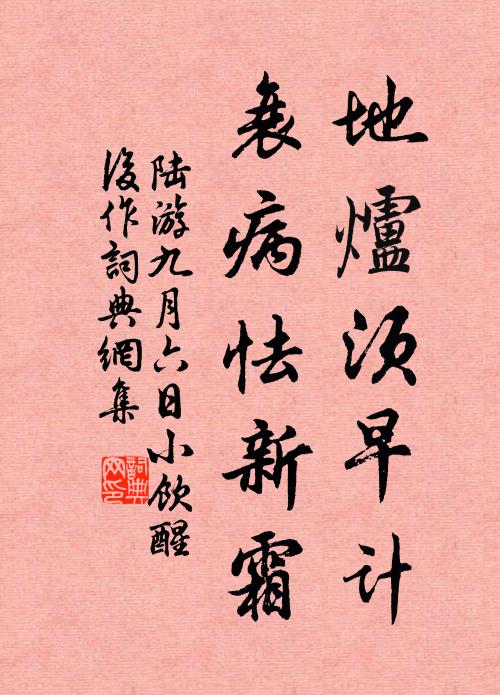 地爐須早計
衰病怯新霜
陸游九月六日小飲醒
後作詞典網集
詞典網印